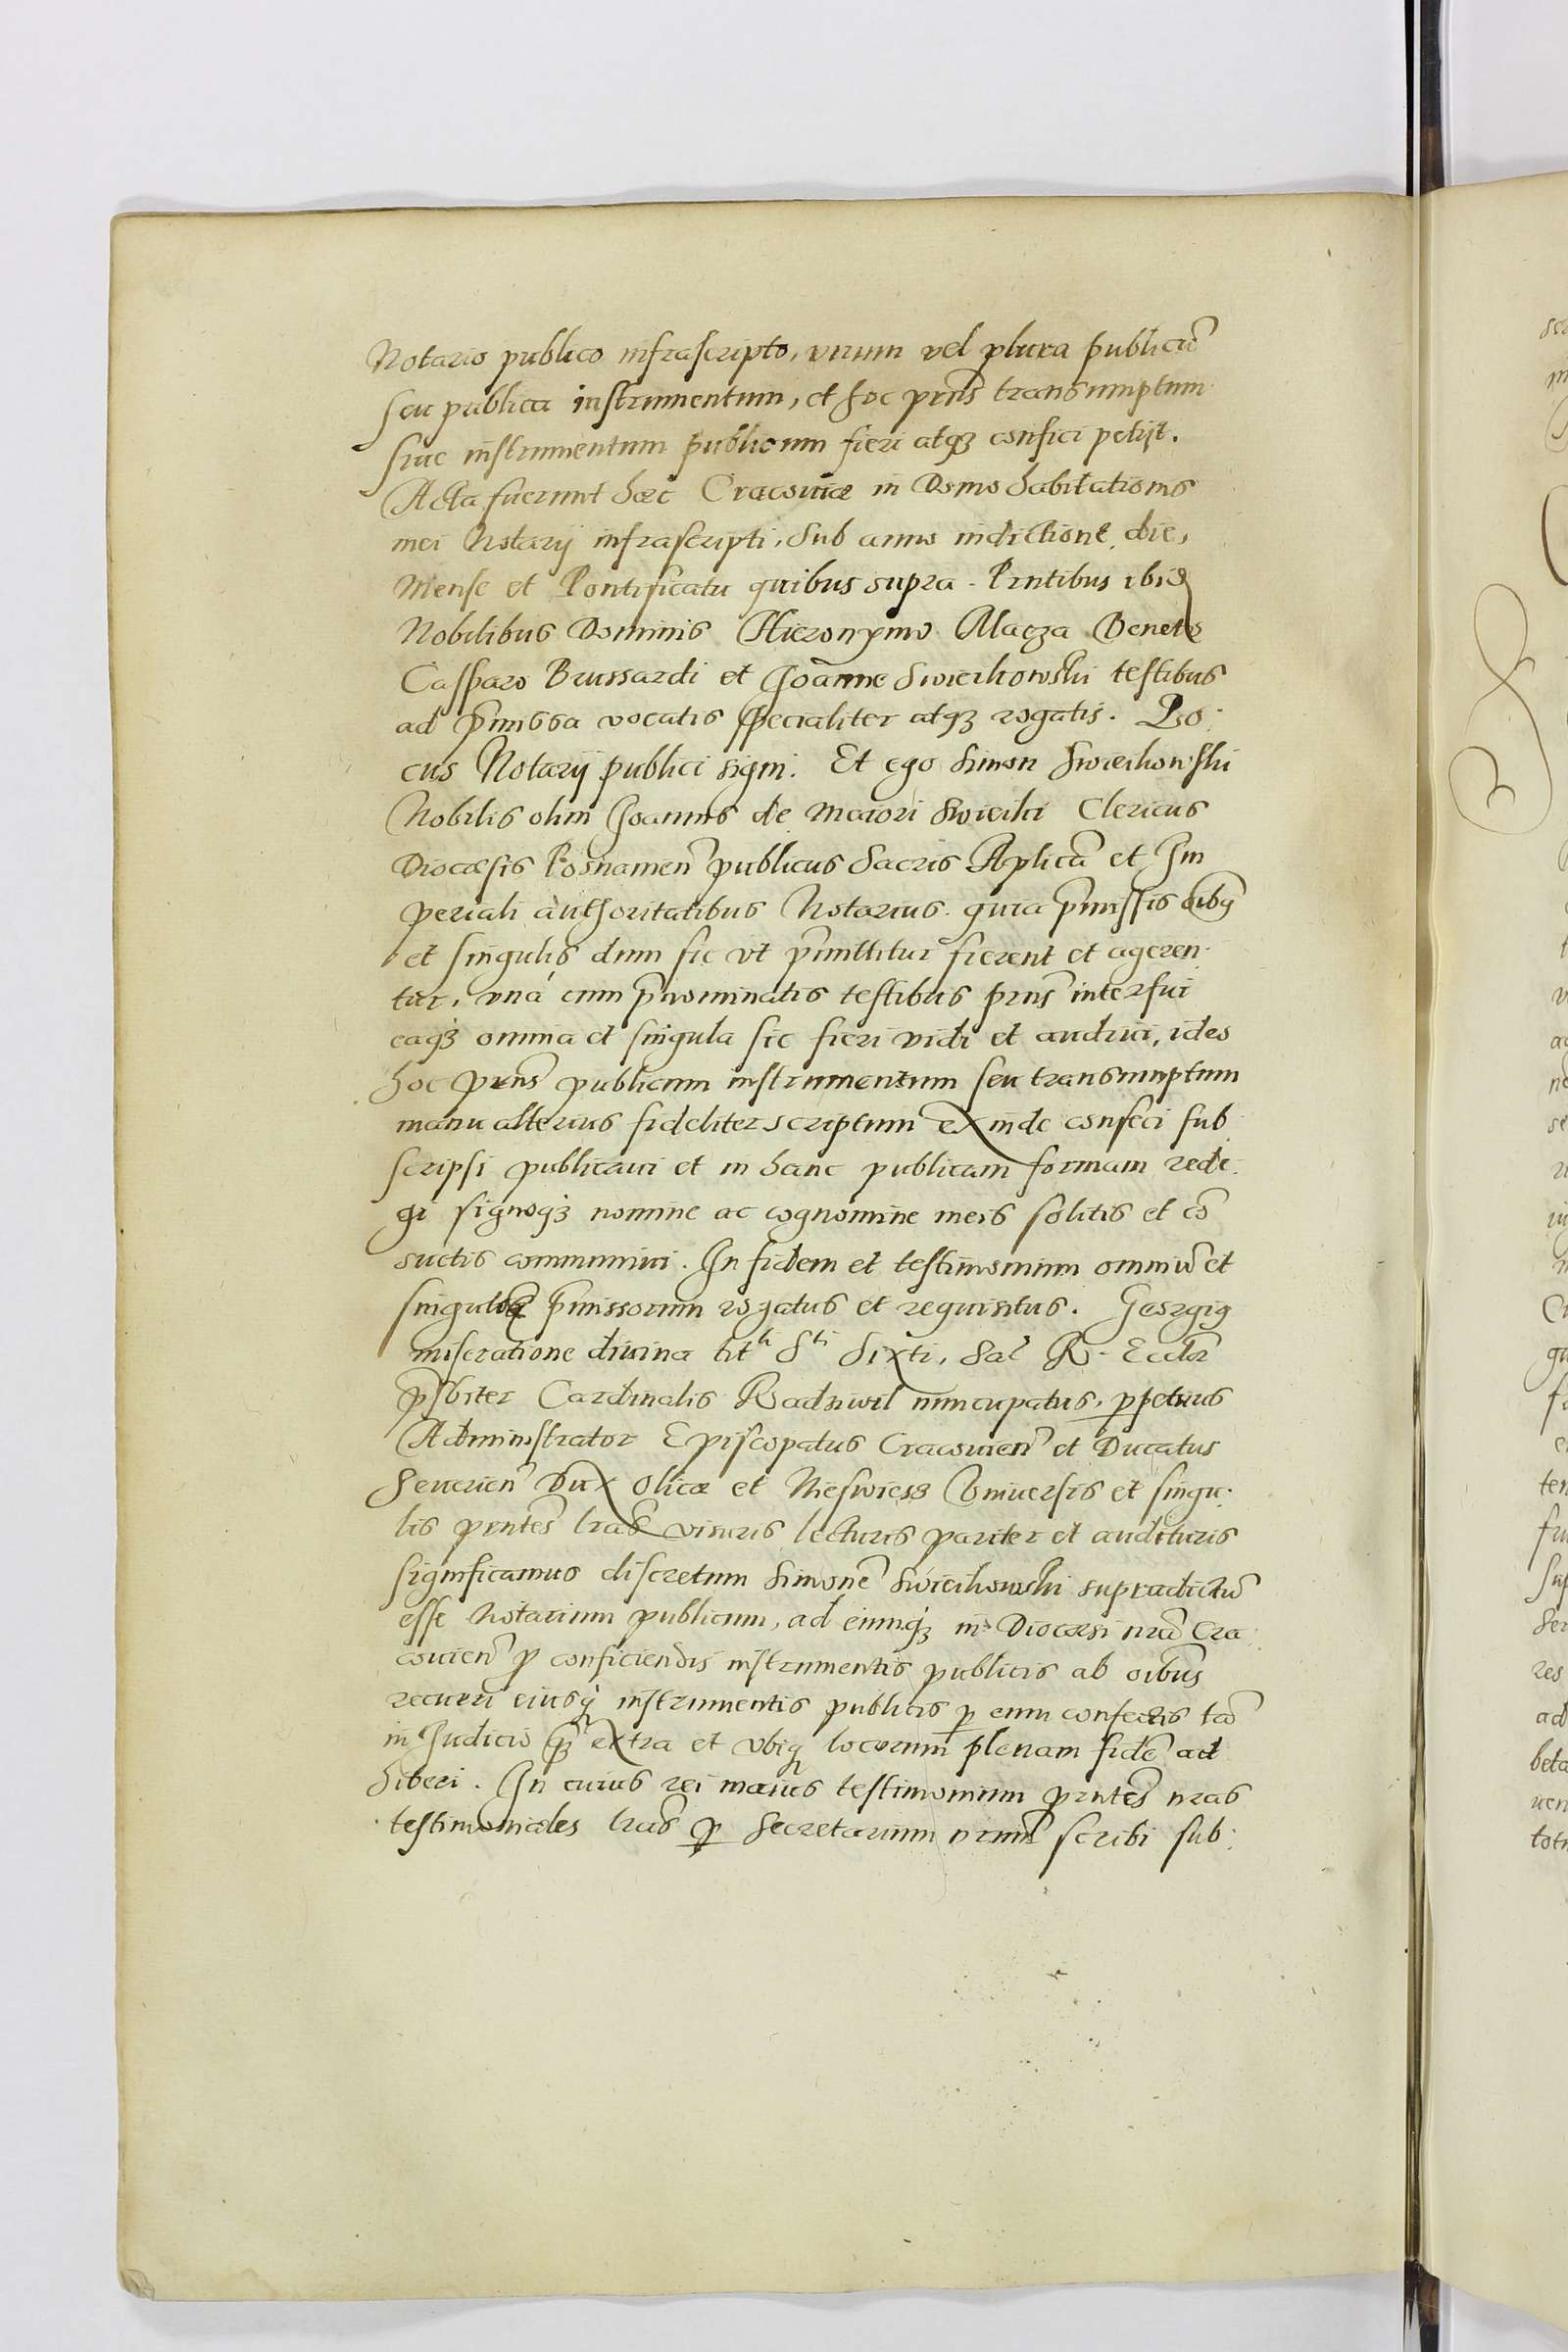 Notario publico infrascripto, unum vel plura publicũ
seu publica instrumentum, et hoc prñs transumptum
siue instrumentum publicum fieri atqȝ confici petijt.
Acta fuerunt hæc Cracouiæ in Domo habitationis
mei Notarij infrascripti, sub anno indictione, die,
Mense et Pontificatu quibus supra. Pñtibus ibid
Nobilibus Dominis Hieronymo Veneto
Casparo Brussardi et Joanne Swiecihowski testibus
ad p̃missa vocatis specialiter atqȝ rogatis. Lo-
cus Notarij publici signi. Et ego Simon Swiecihowski
Nobilis olim Joannis de Maiori Swiecihi Clericus
Diocæsis Posnamen̄ publicus Sacris Aplicã et Im
periali authoritatibus Notarius. quia p̃missis oĩbꝫ
et singulis dum sic vt p̃mittitur fierent et ageren-
tur, vná cum p̃nominatis testibus prñs interfui
eaqȝ omnia et singula sic fieri vidi et audiui, ideo
hoc prñs publicum instrumentum seu transumptum
manu alterius fideliter scriptum exinde confeci sub
scripsi publicaui et in hanc publicam formam rede-
gi signoqȝ nomine ac cognomine meis solitis et cõ
suetis communiui. In fidem et testimonium omniũ et
singulorꝫ p̃missorum rogatus et requisitus. Georgiꝰ
miseratione diuina titˡⁱ Sᵗⁱ Sixti, Sac̃ R. Ecclæ̃
p̃sbiter Cardinalis Radziwil nuncupatus, ꝑpetuus
Administrator Episcopatus Cracouien̄ et Ducatus
Seuerien̄ Dux Olicæ et Nieswiess Vniuersis et singu-
lis prñtes lr̃as visuris lecturis pariter et audituris
significamus discretum Simonẽ Swiecihowski supradictũ
esse Notarium publicum, ad eumqȝ in Diocæsi nrã Cra
couien̄ ꝓ conficiendis instrumentis publicis ab oĩbus
recurri eiusqȝ instrumentis publicis ꝑ eum confectis tã
in Judicio q̃ꝫ extra et vbiqȝ locorum plenam fidẽ ad
hiberi. In cuius rei maius testimonium prñtes nr̃as
testimoniales lr̃as ꝑ Secretarium nrũm scribi sub-